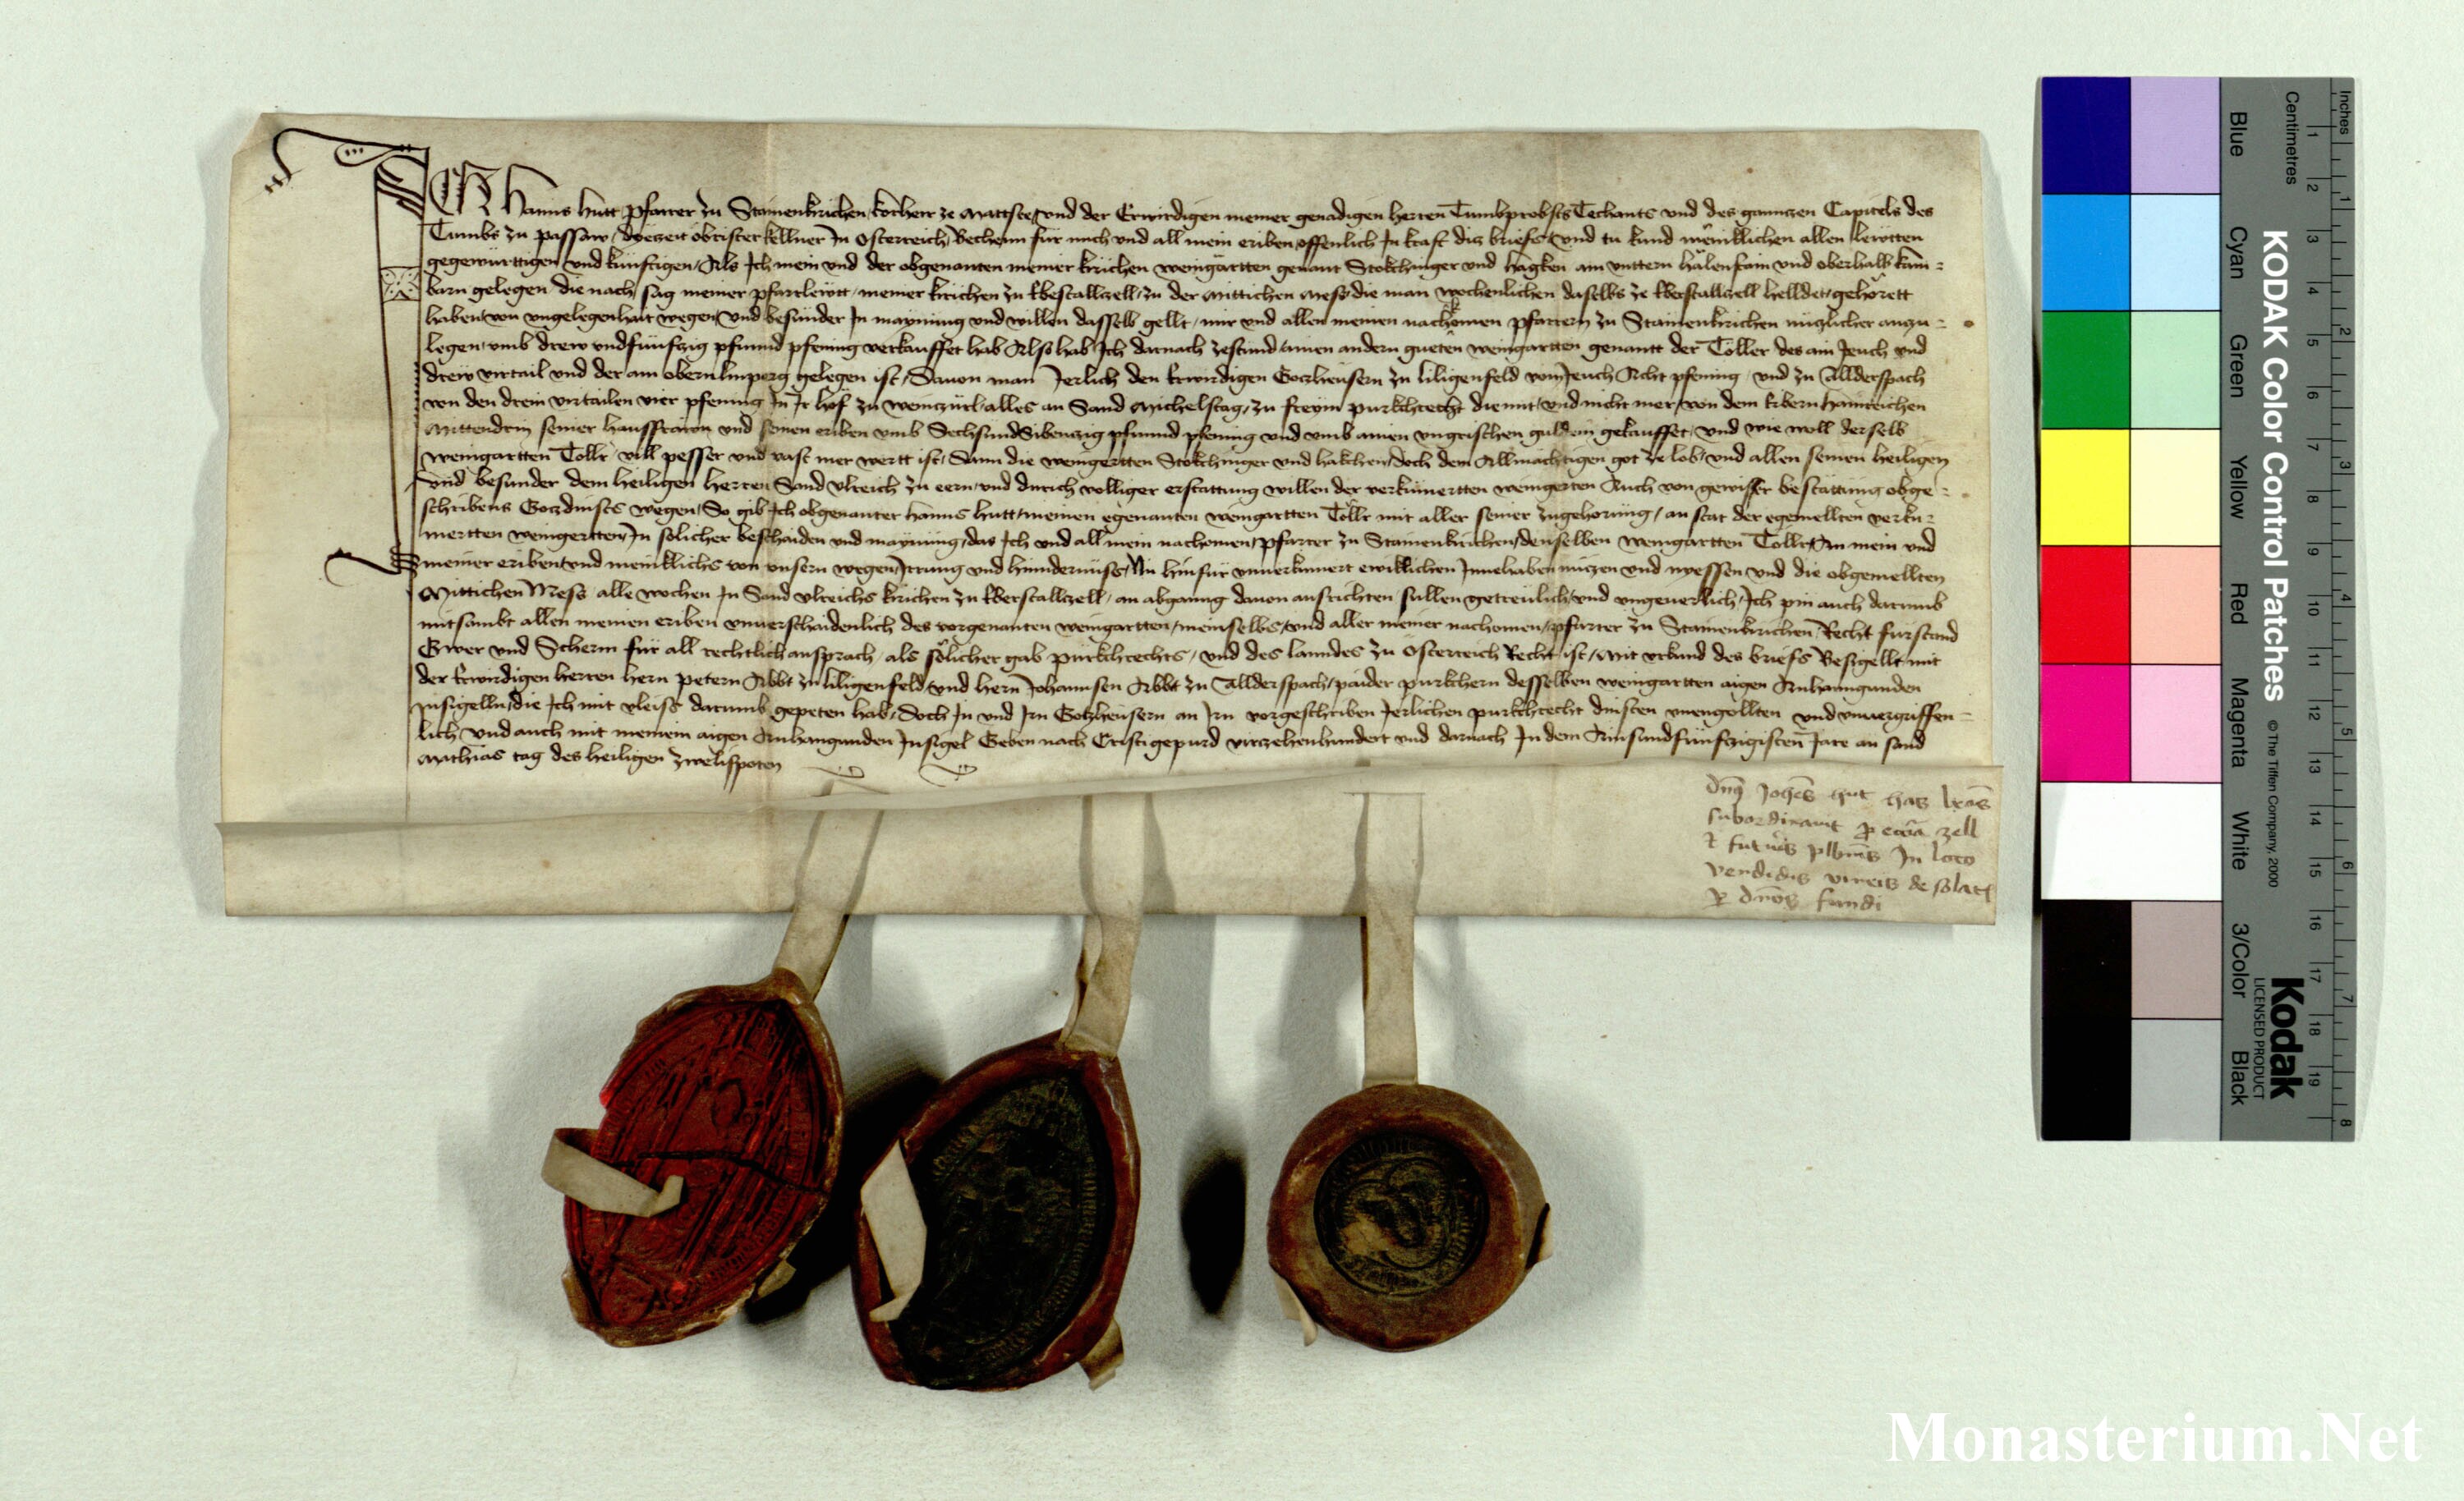 ICH Hanns Hutt pfarrer zu Stainenkirichen korherr ze Mattsee und der Erwirdigen meiner genadigen herren Tumbprobsts Techants und des ganntzen Capitels des
Tumbs zu passaw dyezeit obrister kellner In Osterreich Bechenn für mich und all mein eriben offenlich In kraft ditz briefs und tu kund allen lewtten
gegewürttigen und künftigen Als Ich mein und der obgenanten meiner kirichen weingartten genant Stokchinger und Hagken am unttern und oberhalb kam=
barn gelegen die nach sag meiner pfarrlewtt meiner kirichen zu zu der Mittichen Mess die man wochenlichen daselbs ze helldet gehörett
haben von ungelegenhait wegen und besunder In maynung und willen dasselb gellt mir und allen meinen nachomen pfarrern zu Stainenkirichen nüczlicher anzu=
legen umb drew undfünfczig pfunnd pfening verkauffet hab Also hab Ich darnach zestund ainen andern gueten weingartten genantt der Töller des ain Jeuch und
drew virtail und der am obern gelegen ist Davon man Jerlich den Erwirdigen Gotzheusern zu Liligenfeld vom Jeuch Acht pfening und zu Allderspach
von den drein virtailen vier pfening In Ir hof zu weinczürl alles an Sand Michelstag zu freym purkchrecht diennt und nicht mer von dem Erbern Hainreichen
seiner hausfrawn und seinen eriben umb Sechsundsibenczig pfunnd pfening und umb ainen ungrischen guldein gekauffet und wie woll derselb
weingartten Tollr vill pesser und vast mer wertt ist Dann die weingertten Stokchinger und hakchen doch dem Allmächtigen got ze lob und allen seinen heiligen
und besunder dem heiligen herren Sand Ulreich zu eern und durich volliger erstattung willen der verkümertten weingerten Auch von gewisser bestättung obge=
schribens Gotzdinsts wegen So gib Ich obgenanter Hanns Hutt meinen egenanten weingartten Töllr mit aller seiner zugehorung an stat der egemellten verku=
mertten weingertten In solicher beschaiden und maynung das Ich und all mein nachomen pfarrer zu Stainenkirichen denselben weingartten Tollr An mein und
meiner eriben und meniklichs von unsern wegen Irrung und hindernüss Nu hinfür unverkumert ewiklichen Innehaben nüczen und nyessen und die obgemellten
Mittichen Mess alle wochen In Sand Ulreichs kirichen zu an abganng davon ausrichten sullen getreulich und ungeverlich Ich pin auch darumb
mitsambt allen meinen eriben unverschaidenlich des vorgenanten weingartten meinselbs und aller meiner nachomen pfarrer zu Stainenkirichen Recht fürstand
Gwer und Scherm für all rechtlich ansprach als sölicher gab purkchrechts und des lanndes zu Osterreich Recht ist Mit urkund des briefs Besigellt mit
der Erwirdigen herren hern petern Abbt zu liligenfeld und hern Johannsen Abbt zu Allderspach paider purkhern desselben weingartten aigen Anhanngunden
Insigelln die Ich mit vleiss darumb gepeten hab Doch In und Irn Gotzheusern an Irn vorgeschriben Jerlichen purkchrecht dinsten unengollten und unvergriffen=
lich und auch mit meinem aigen Anhangunden Insigel Geben nach Cristi gepurd virczehenhundert und darnach In dem Ainsundfünfczigisten Jare an sand
Mathias tag des heiligen zwelifpoten
dns Johes Hut has lras
subordinavit p zell
et futuris plbnis In loco
vendidis vineis desolatis
p dnos fundi
Inches
Centimetres
1 2 3 4 5 6 7 8
1 2 3 4 5 6 7 8 9 10 11 12 13 14 15 16 17 18 19
Blue Cyan Green Yellow Red Magenta White 3/Color Black
KODAK Color Control Patches © The Tiffen Company, 2000
Kodak
LICENSED PRODUCT
Monasterium.Net